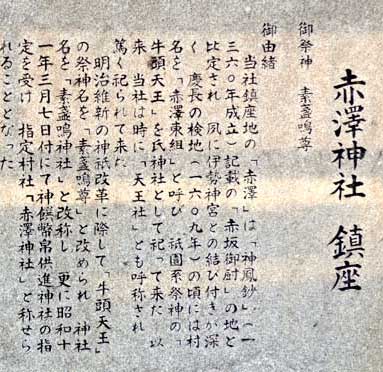 赤澤神社 鎮座
御祭神 素盞嗚尊
御由緒
当社鎮座地の「赤澤」は「神鳳鈔」(一
三六〇年成立)記載の「赤坂御厨」の地と
比定され 夙に伊勢神宮との結び付きが深
く 慶長の検地(一六〇九年)の頃には村
名を「赤澤東組」と呼び 祇園系祭神の「
牛頭天王」を氏神社として祀って来た 以
来 当社は時に「天王社」とも呼称され
篤く祀られて来た
明治維新の神祇改革に際して「牛頭天王」
の祭神名を「素盞嗚尊」と改められ 神社
名を「素盞嗚神社」と改称し 更に昭和十
一年三月七日付にて神饌幣帛供進神社の指
定を受け 指定村社「赤澤神社」と称せら
れることとなった